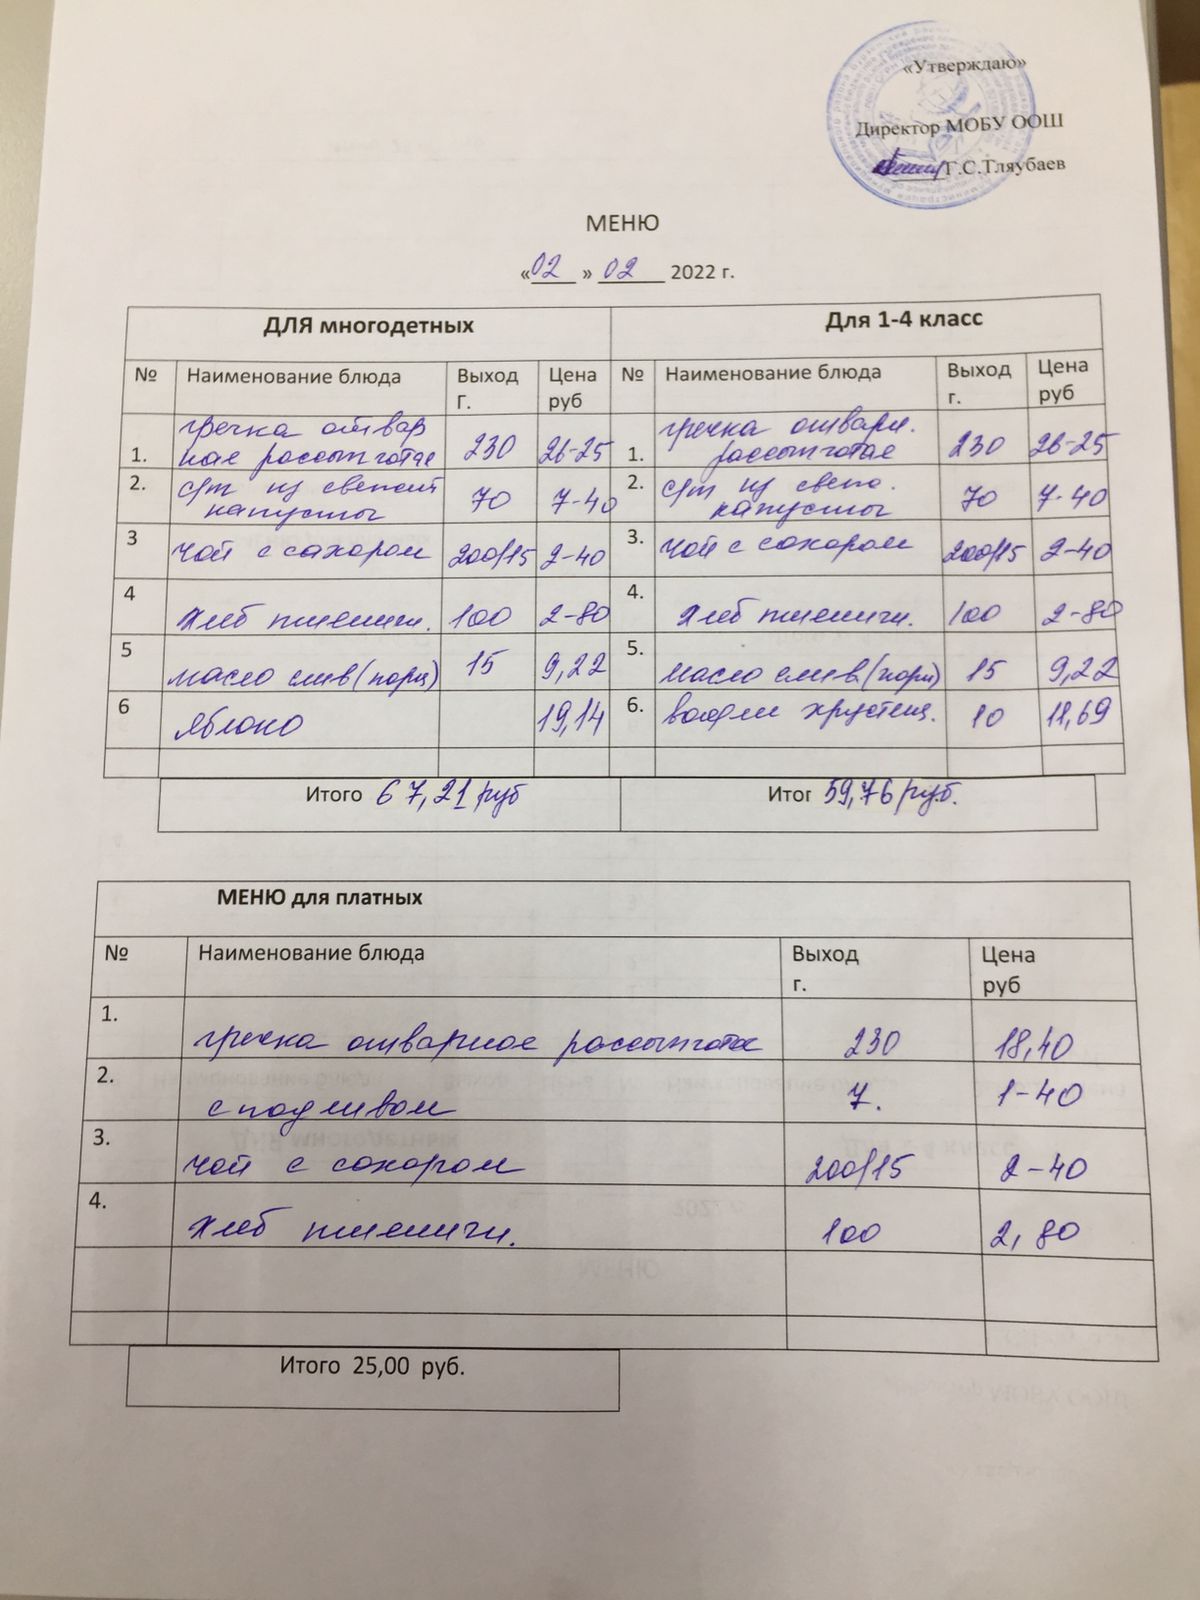 «Утверждаю»
Директор МОБУ ООШ
Г.С.Тляубаев
МЕНЮ
«02» 02 2022 г.
ДЛЯ многодетных Для 1-4 класс
№ Наименование блюда Выход г. Цена руб № Наименование блюда Выход г. Цена руб
1. гречка отвар ная рассыпчатая 230 26-25 1. гречка отварн. рассыпчатая 230 26-25
2. с/т из свежей капусты 70 7-40 2. с/т из свеж. капусты 70 7-40
3 чай с сахаром 200/15 2-40 3. чай с сахаром 200/15 2-40
4 хлеб пшеничн. 100 2-80 4. хлеб пшеничн. 100 2-80
5 масло слив (порц) 15 9,22 5. масло слив (порц) 15 9,22
6 яблоко 19,14 6. вафли хрустящ. 10 11,69
Итого 67,21 руб Итог 59,76 руб.
МЕНЮ для платных
№ Наименование блюда Выход г. Цена руб
1. гречка отварная рассыпчатая 230 18,40
2. с подливом 7. 1-40
3. чай с сахаром 200/15 2-40
4. хлеб пшеничн. 100 2,80
Итого 25,00 руб.